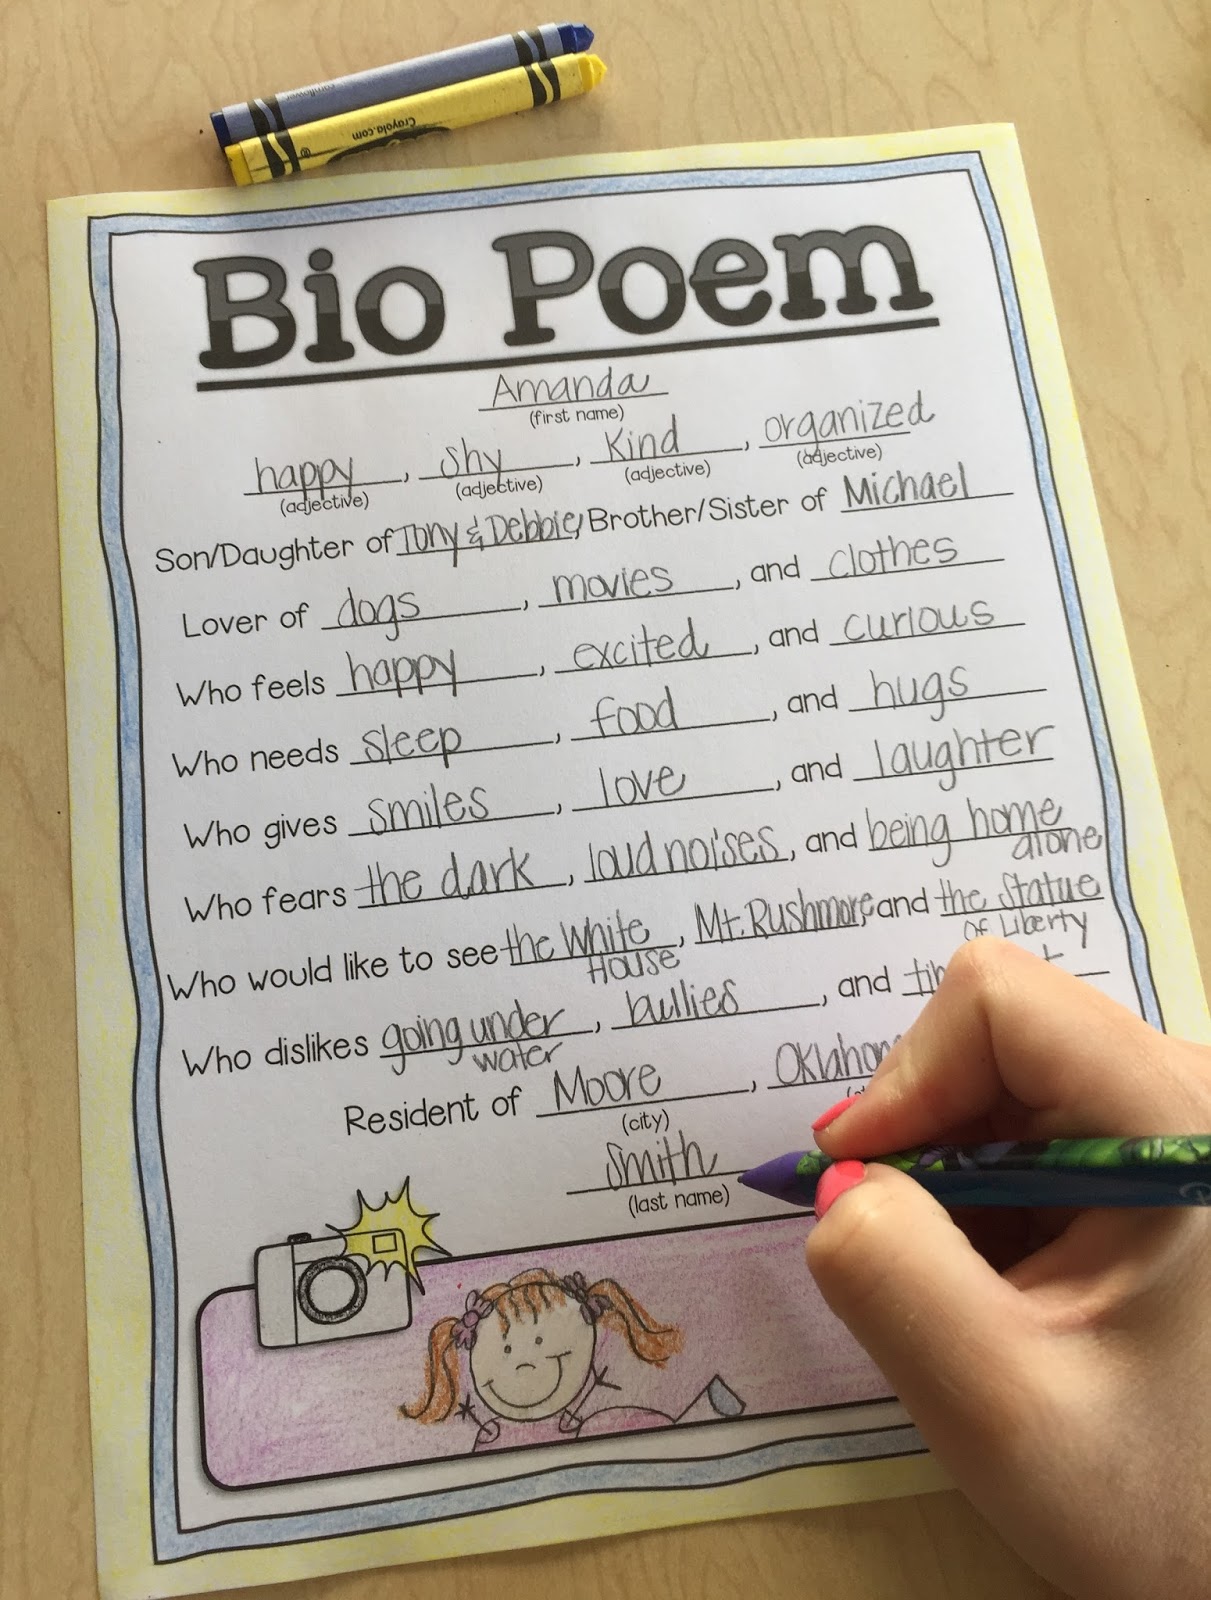 Crayola.com
Bio Poem
Amanda
(first name)
happy, shy, kind, organized
(adjective) (adjective) (adjective) (adjective)
Son/Daughter of Tony & Debbie, Brother/Sister of Michael
Lover of dogs, movies, and clothes
Who feels happy, excited, and curious
Who needs sleep, food, and hugs
Who gives smiles, love, and laughter
Who fears the dark, loud noises, and being home
alone
Who would like to see the White, Mt. Rushmore, and the Statue
House of Liberty
Who dislikes going under, bullies, and
water
Resident of Moore,
(city)
Smith
(last name)